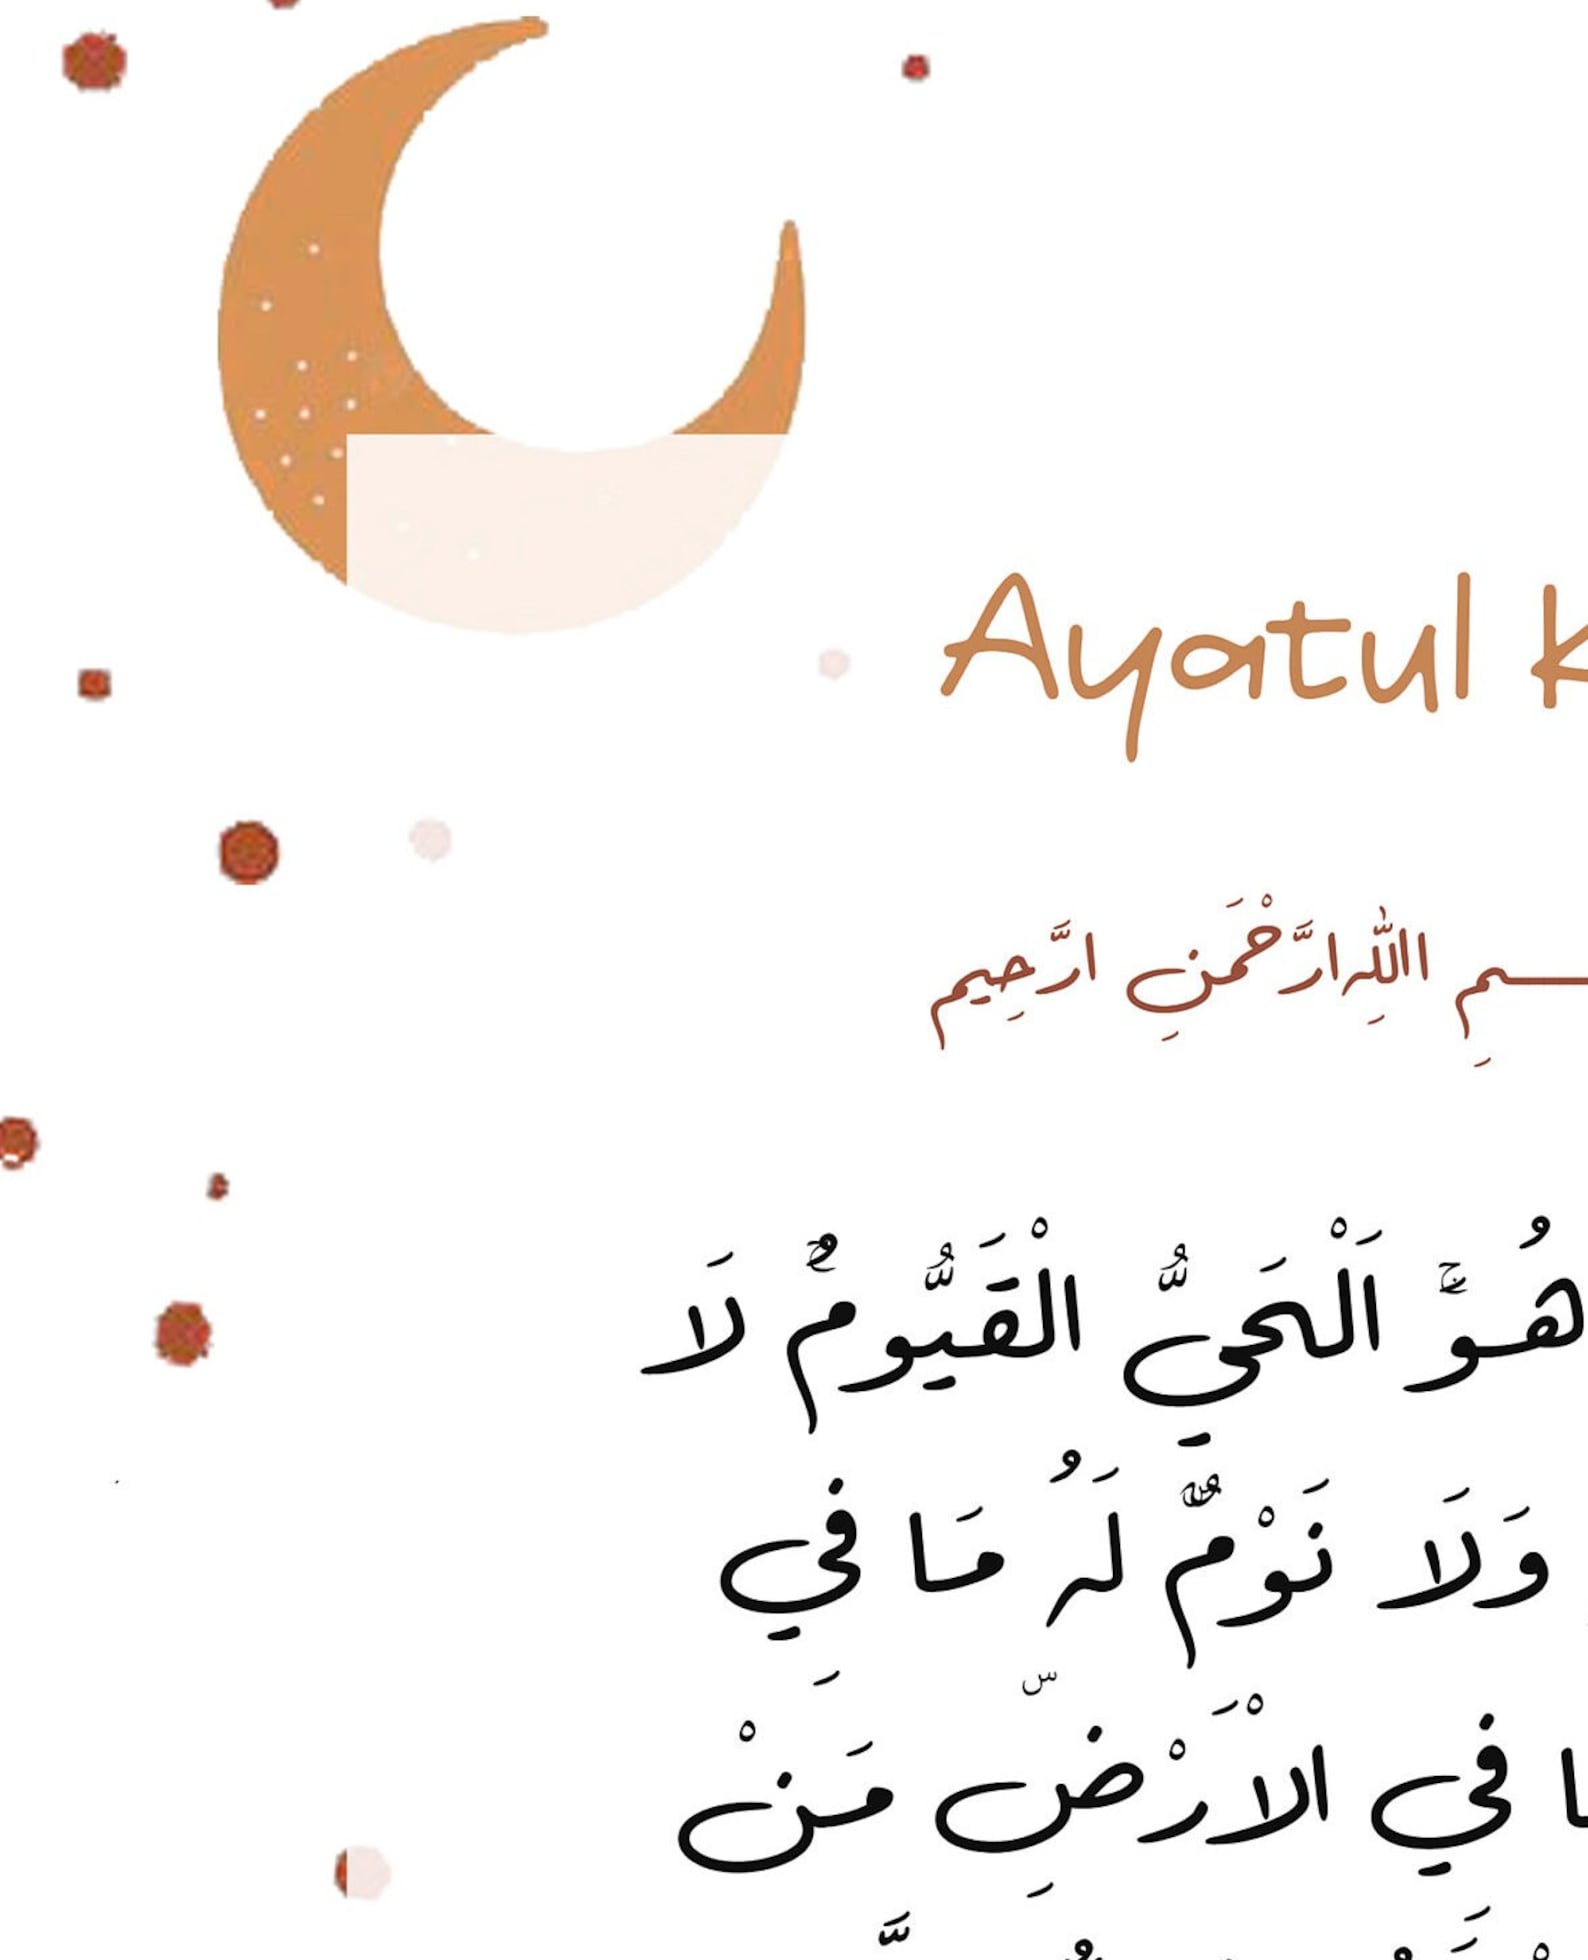 Ayatul K
ـــمِ اللّٰهِ ارَّحْمَنِ ارَّحِيم
هُوَۚ اَلْحَيُّ الْقَيُّومُۚ لَا
وَلَا نَوْمٌۜ لَهُ مَا فِي
ا فِي الْاَرْضِۜ مَنْ